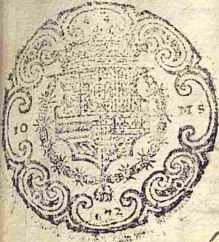 10 MS
672